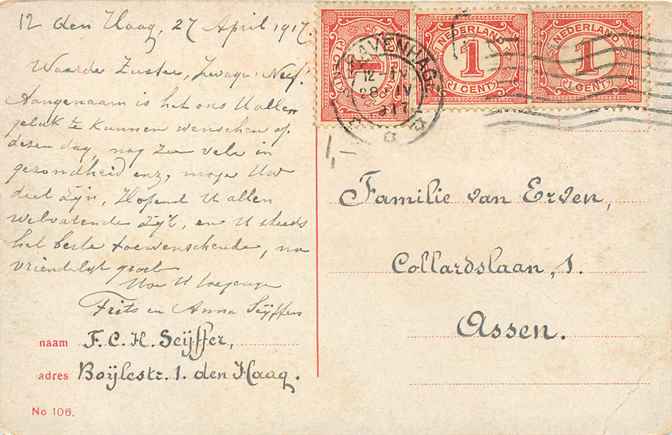 12 den Haag, 27 April 1917.
Waarde Zuster, Zwager, Neef!
Aangenaam is het ons U allen
geluk te kunnen wenschen op
dezen dag, nog zeer vele in
gezondheid enz, moge Uw
deel zijn, Hopend U allen
welvarende zijt, en U steeds
het beste toewenschende, na
vriendelijk groet
Uw U toegenegen
Frits en Anna Seijffer
naam F. C. H. Seijffer,
adres Boijlestr. 1. den Haag.
No 106.
NEDERLAND
1
(1 CENT)
NEDERLAND
1
(1 CENT)
1
'S GRAVENHAGE
12-1 N
28 IV
917
Familie van Erven,
Collardslaan, 1.
Assen.